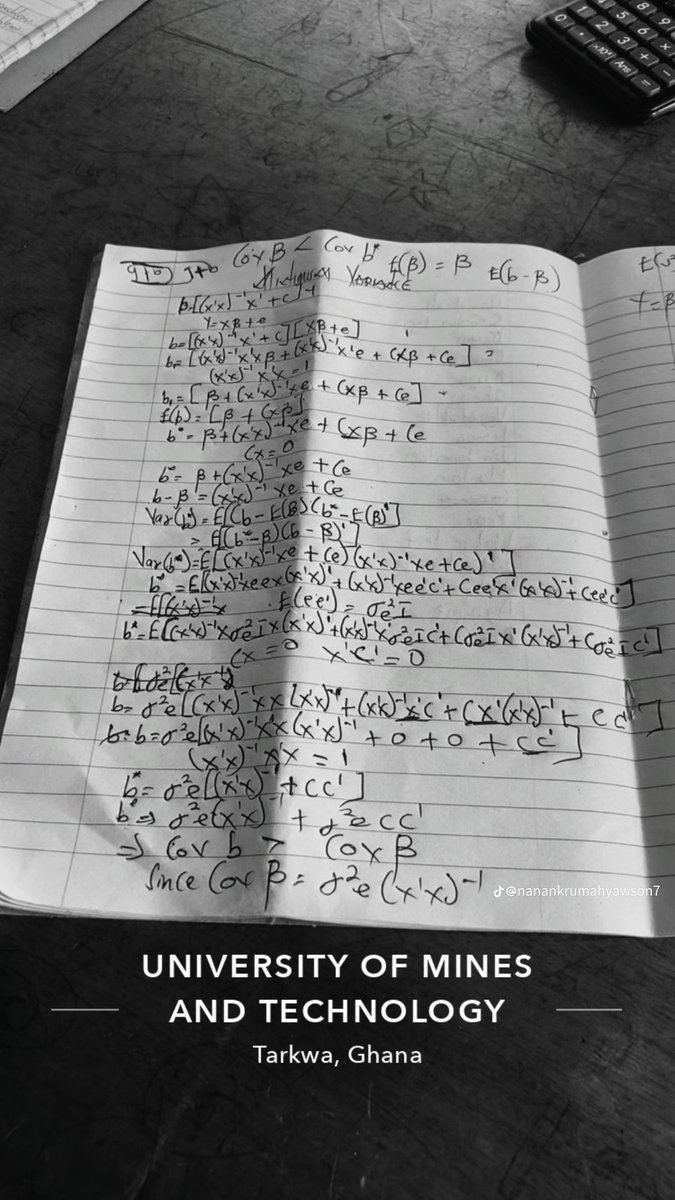 Cov β < Cov b* E(β) = β E(b-β)
Minimum Variance
β=[(x'x)⁻¹x' + c] Y
Y = xβ + e
b=[(x'x)⁻¹x' + c][xβ+e]
b=[(x'x)⁻¹x'xβ + (x'x)⁻¹x'e + cxβ + ce]
(x'x)⁻¹x'x = 1
b=[β + (x'x)⁻¹xe + cxβ + ce]
E(b) = [β + cxβ]
b* = β+(x'x)⁻¹xe + cxβ + ce
cx = 0
b* = β+(x'x)⁻¹xe + ce
b-β = (x'x)⁻¹xe + ce
Var(b*) = E[(b-E(β)(b*-E(β)']
= E[(b*-β)(b-β)']
Var(b*)=E[(x'x)⁻¹xe + ce)(x'x)⁻¹xe+ce)']
b*=E[(x'x)⁻¹xeex(x'x)' + (x'x)⁻¹xee'c' + cee'x'(x'x)⁻¹ + cee'c']
=E[(x'x)⁻¹x E(ee') = σ²eI
b*=E[(x'x)⁻¹xσ²eIx(x'x)' + (x'x)⁻¹xσ²eIc' + cσ²eIx'(x'x)⁻¹ + cσ²eIc']
cx = 0 x'c' = 0
b=σ²e[(x'x)⁻¹xx(xx)⁻¹ + (x'x)⁻¹x'c' + cx'(x'x)⁻¹ + cc']
b=σ²e[(x'x)⁻¹x'x(x'x)⁻¹ + 0 + 0 + cc']
(x'x)⁻¹x'x = 1
b* = σ²e[(x'x)⁻¹ + cc']
b* ⇒ σ²e(x'x)⁻¹ + σ²ecc'
⇒ Cov b > Cov β
Since Cov β = σ²e(x'x)⁻¹
@nanankrumahyawson7
UNIVERSITY OF MINES
AND TECHNOLOGY
Tarkwa, Ghana